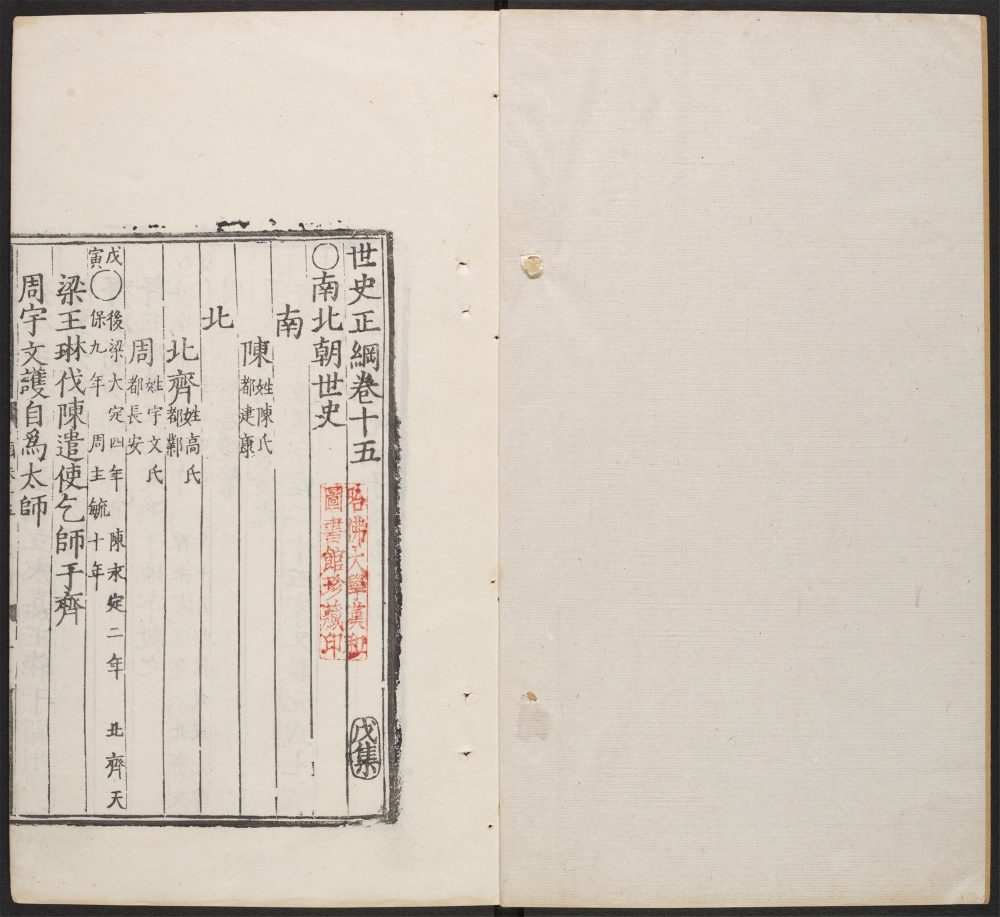 世史正綱卷十五
戊集
〇南北朝世史
南
陳 姓陳氏
都建康
北
北齊 姓高氏
都鄴
周 姓宇文氏
都長安
戊寅
〇 後梁大定四年 陳永定二年 北齊天
保九年 周主毓十年
梁王琳伐陳遣使乞師于齊
周宇文護自爲太師
哈佛大學漢和
圖書館珍藏印